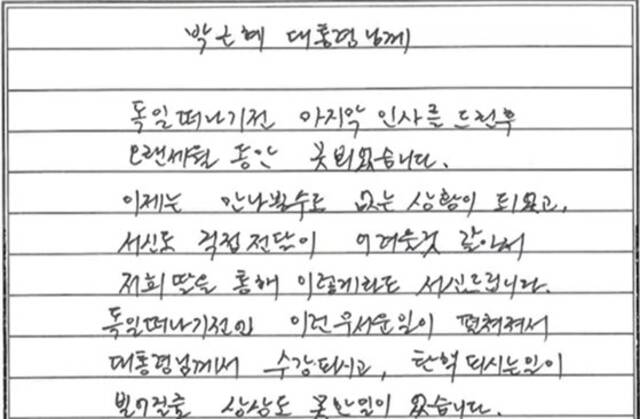 박근혜 대통령님께
독일떠나기전 마지막 인사를 드린후
오랜세월 동안 못뵈었습니다.
이제는 만나뵐수도 없는 상황이 되었고,
서신도 직접전달이 어려울것 같아서
저희 딸을 통해 이렇게라도 서신드립니다.
독일떠나기전엔 이런무서운일이 펼쳐져서
대통령님께서 수감되시고, 탄핵되시는일이
벌어질줄 상상도 못한일이 었습니다.